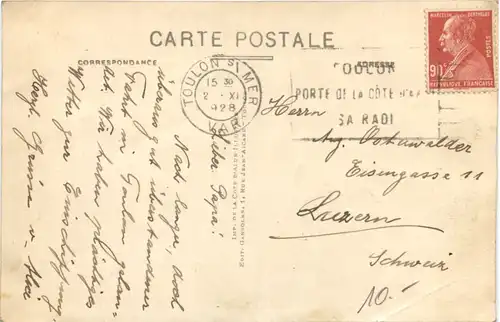 CARTE POSTALE
CORRESPONDANCE
ADRESSE
TOULON S/ MER
15 30
2 - XI
1928
VAR
TOULON
PORTE DE LA CÔTE D'AZUR
SA RADE
MARCELIN BERTHELOT
POSTES
90c
REPUBLIQUE FRANÇAISE
Lieber Papa!
Nach langer, doch
überaus gut überstandener
Fahrt in Toulon gelan-
det. Wir haben prächtiges
Wetter zur Einschiffung.
Herzl. Grüsse v. Alice
IMP. DE LA CÔTE D'AZUR
Herrn
Aug. Ostertwalder
Eisengasse 11
Luzern
Schweiz
10.-